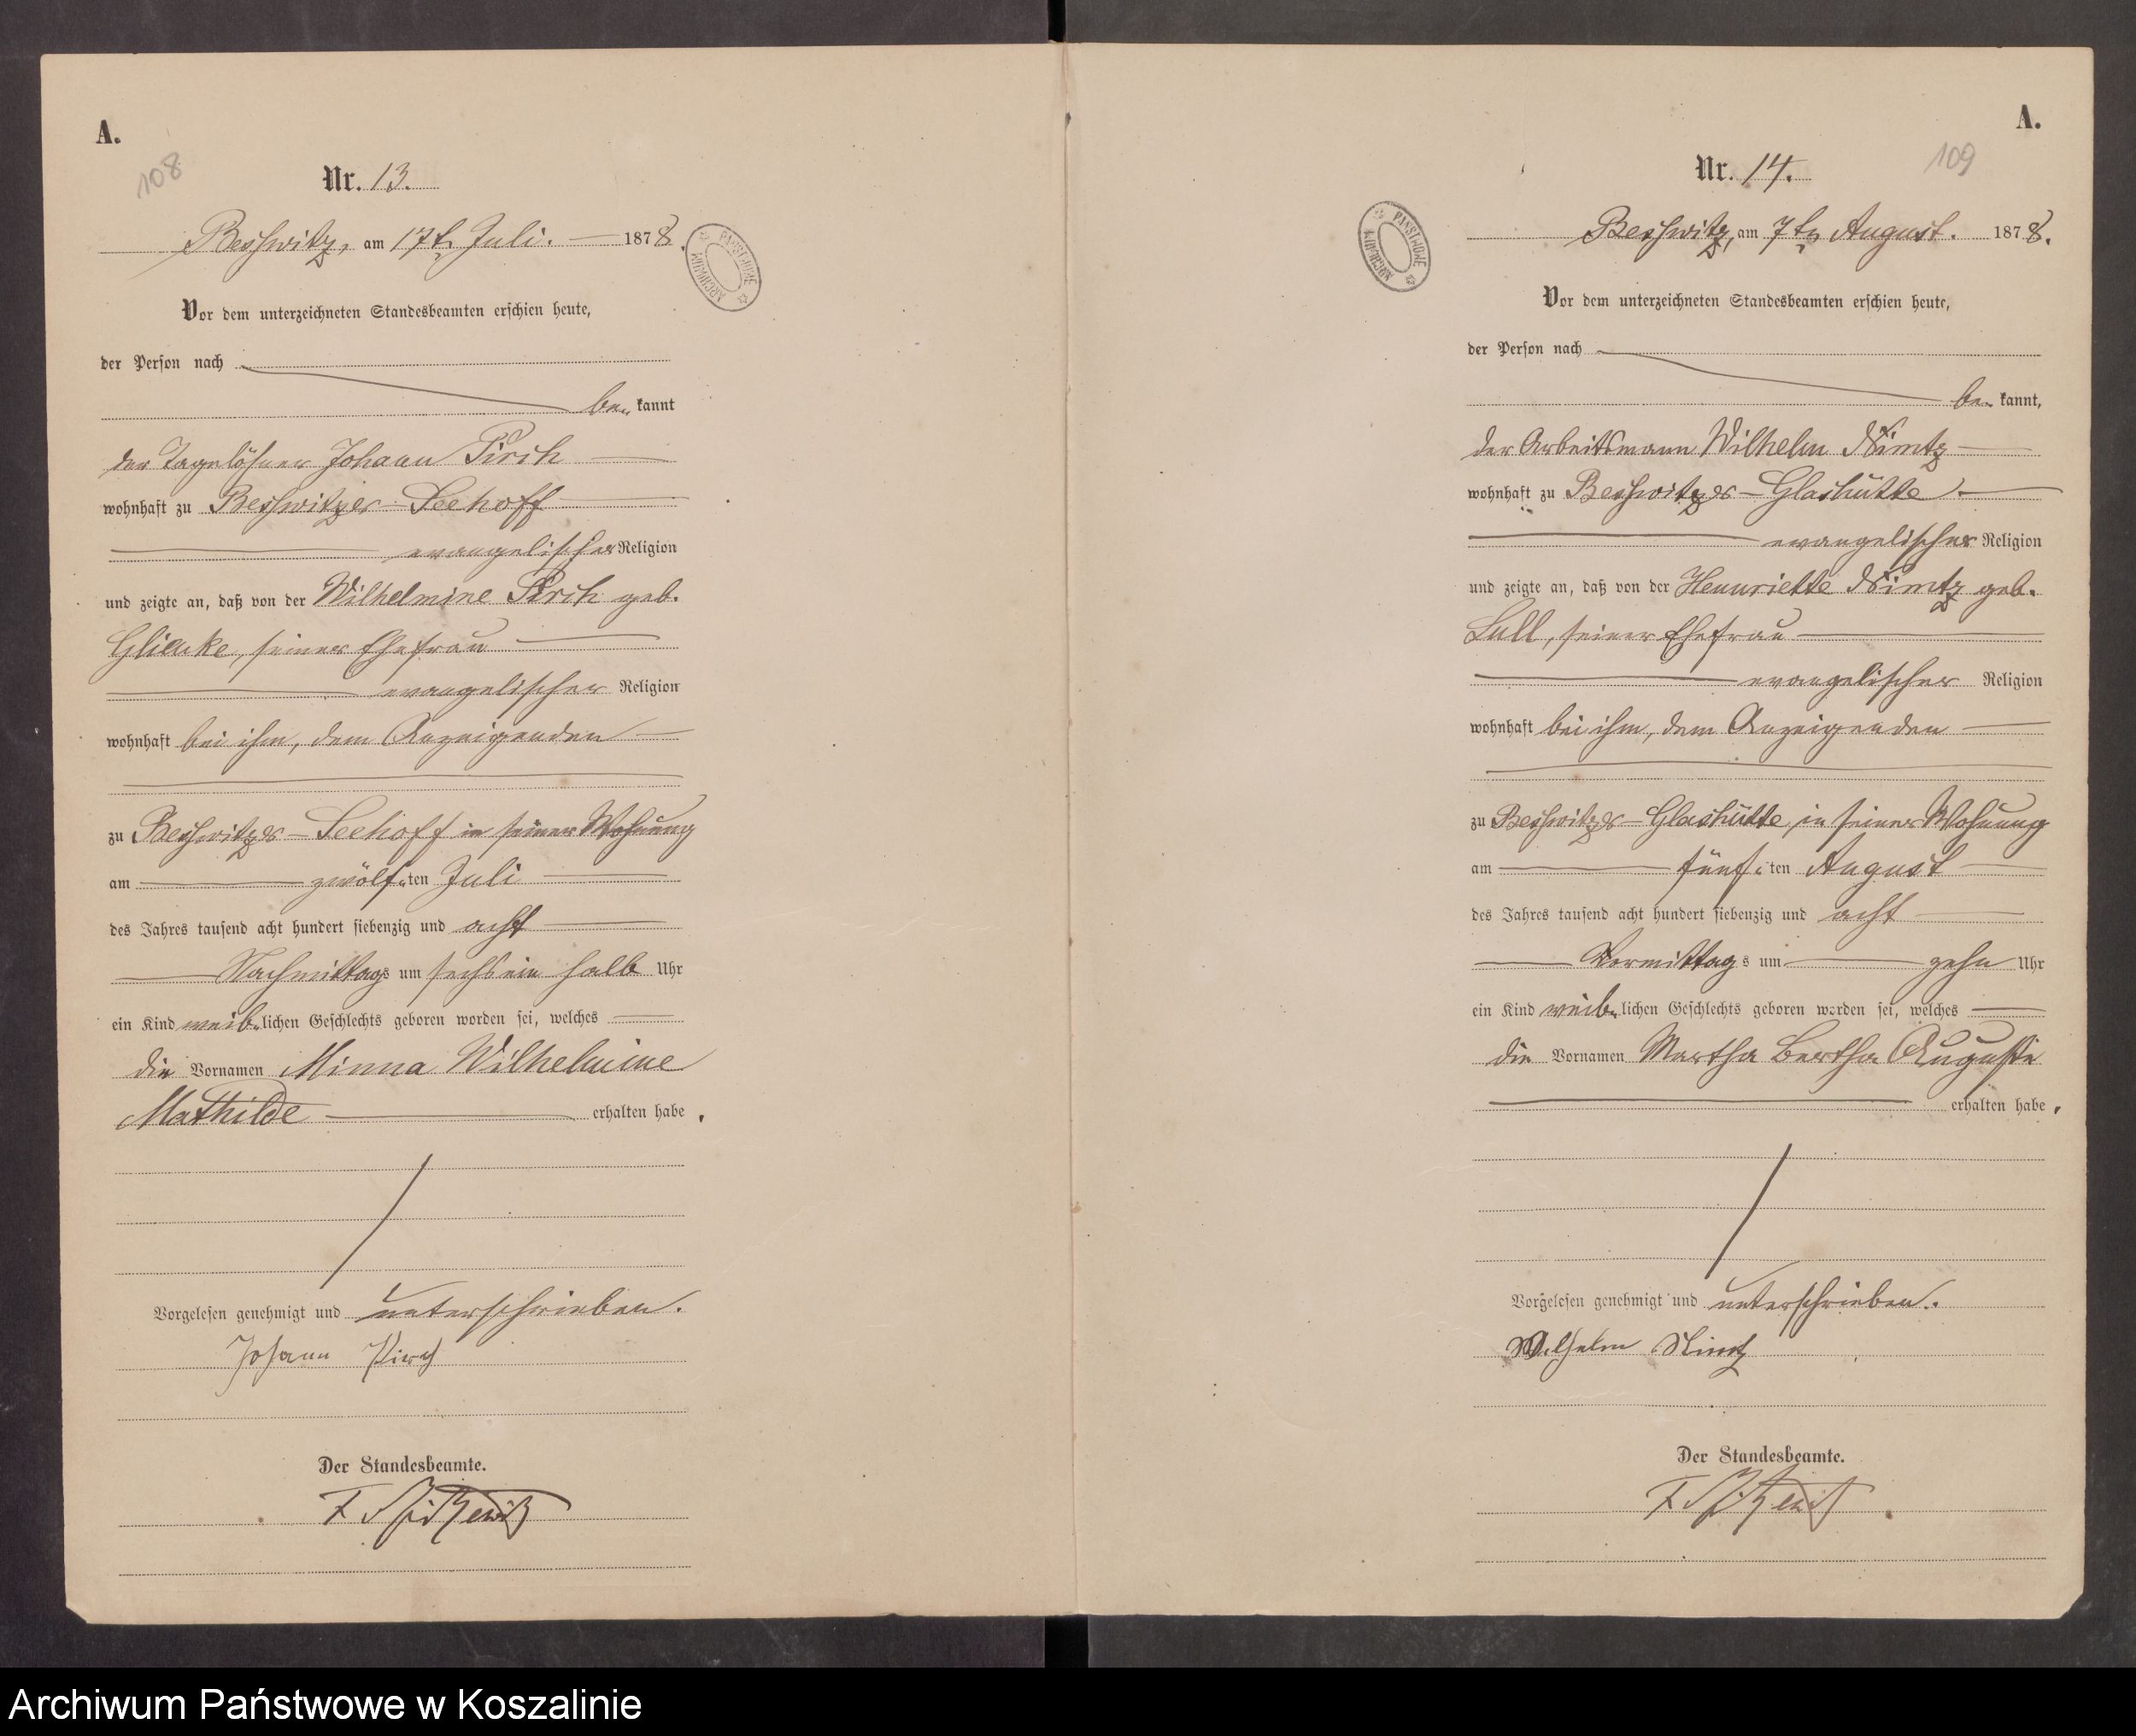 A.
108
Nr. 13.
Beßwitz, am 17t. Juli. 1878.
ARCHIWUM PAŃSTWOWE
Vor dem unterzeichneten Standesbeamten erschien heute,
der Person nach
be- kannt
der Tagelöhner Johann Pirch
wohnhaft zu Beßwitzer-Seehoff
evangelischer Religion
und zeigte an, daß von der Wilhelmine Pirch geb.
seiner Ehefrau
evangelischer Religion
wohnhaft bei ihm, dem Anzeigenden
zu Beßwitzer-Seehoff in seiner Wohnung
am zwölf-ten Juli
des Jahres tausend acht hundert siebenzig und acht
Nachmittags um sechs ein halb Uhr
ein Kind weib-lichen Geschlechts geboren worden sei, welches
die Vornamen Minna Wilhelmine
Mathilde erhalten habe.
Vorgelesen genehmigt und unterschrieben.
Johann Pirch
Der Standesbeamte.
A.
109
Nr. 14.
Beßwitz, am 7ten August. 1878.
ARCHIWUM PAŃSTWOWE
Vor dem unterzeichneten Standesbeamten erschien heute,
der Person nach
be- kannt,
der Arbeitsmann Wilhelm Nimtz
wohnhaft zu Beßwitzer-Glashütte
evangelischer Religion
und zeigte an, daß von der Hennriette Nimtz geb.
Lull, seiner Ehefrau
evangelischer Religion
wohnhaft bei ihm, dem Anzeigenden
zu Beßwitzer-Glashütte, in seiner Wohnung
am fünf-ten August
des Jahres tausend acht hundert siebenzig und acht
Vormittags um zehn Uhr
ein Kind weib-lichen Geschlechts geboren worden sei, welches
die Vornamen Martha Bertha Auguste
erhalten habe.
Vorgelesen genehmigt und unterschrieben.
Wilhelm Nimtz
Der Standesbeamte.
Archiwum Państwowe w Koszalinie